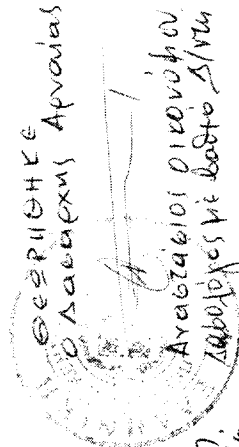 ΘΕΩΡΗΘΗΚΕ
Ο Δασάρχης Αρναίας
Αναστάσιος Οικονόμου
Δασολόγος με βαθμό Δ/ντή